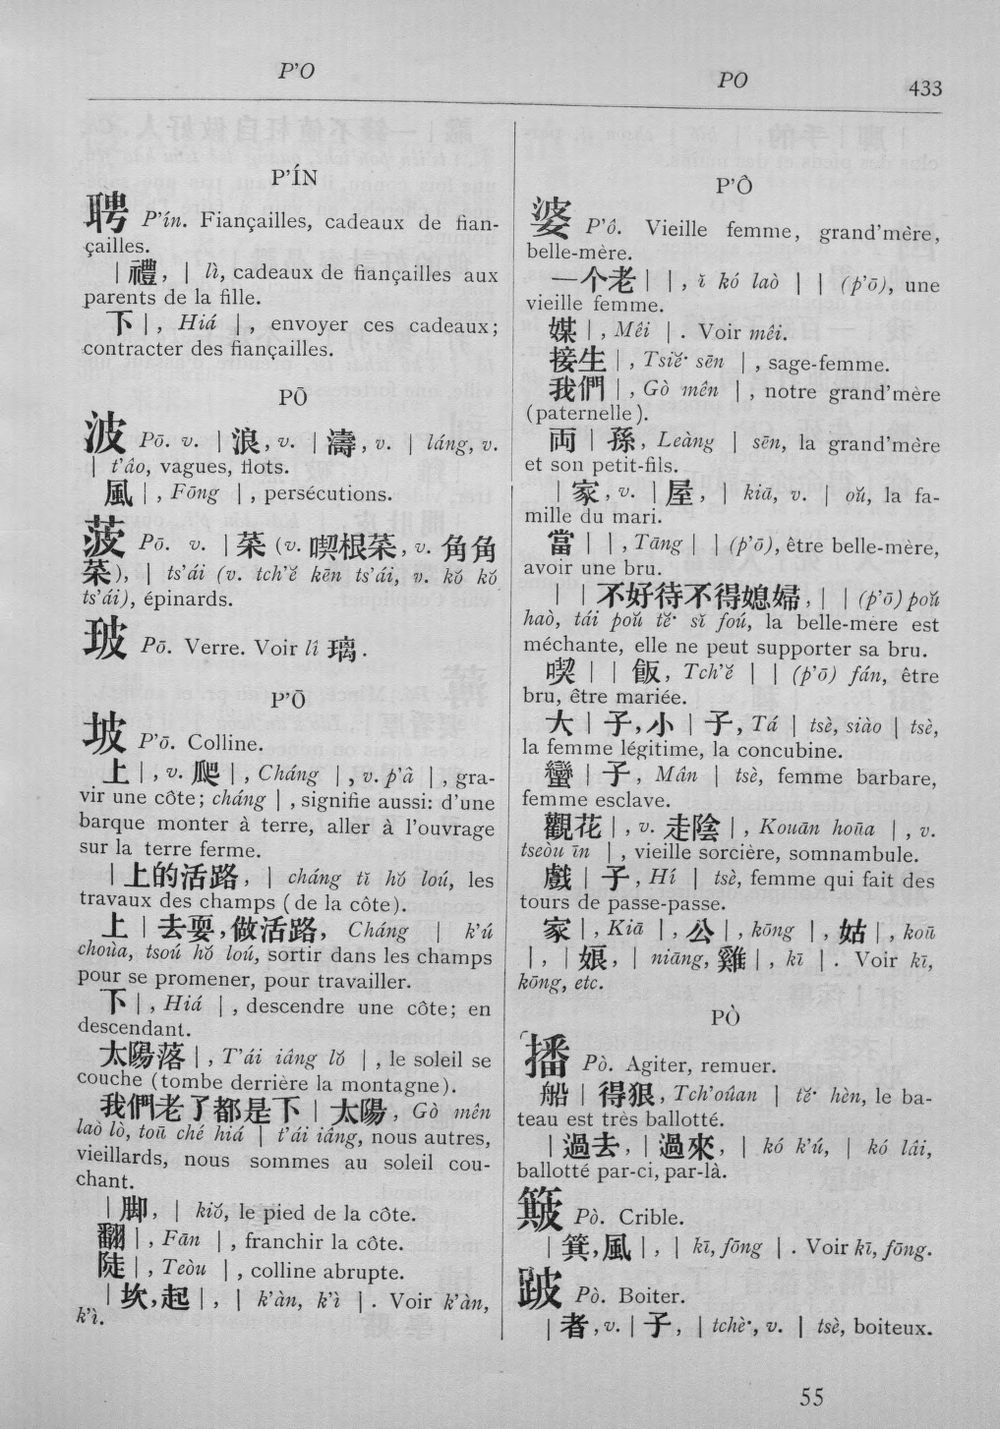 P’O
PO
433
P’ÍN
聘 P’ín. Fiançailles, cadeaux de fian-
çailles.
| 禮, | lì, cadeaux de fiançailles aux
parents de la fille.
下 |, Hiá |, envoyer ces cadeaux;
contracter des fiançailles.
PŌ
波 Pō. v. | 浪, v. | 濤, v. | láng, v.
| t’âo, vagues, flots.
風 |, Fōng |, persécutions.
菠 Pō. v. | 菜 (v. 喫根菜, v. 角角
菜), | ts’ái (v. tch’ĕ kēn ts’ái, v. kŏ kŏ
ts’ái), épinards.
玻 Pō. Verre. Voir lî 璃.
P’Ō
坡 P’ō. Colline.
上 |, v. 爬 |, Cháng |, v. p’â |, gra-
vir une côte; cháng |, signifie aussi: d’une
barque monter à terre, aller à l’ouvrage
sur la terre ferme.
| 上的活路, | cháng tĭ hŏ loú, les
travaux des champs (de la côte).
上 | 去耍, 做活路, Cháng | k’ú
choùa, tsoú hŏ loú, sortir dans les champs
pour se promener, pour travailler.
下 |, Hiá |, descendre une côte; en
descendant.
太陽落 |, T’ái iâng lŏ |, le soleil se
couche (tombe derrière la montagne).
我們老了都是下 | 太陽, Gò mên
laò lò, toū ché hiá | t’ái iâng, nous autres,
vieillards, nous sommes au soleil cou-
chant.
| 脚, | kiŏ, le pied de la côte.
翻 |, Fān |, franchir la côte.
陡 |, Teòu |, colline abrupte.
| 坎, 起 |, | k’àn, k’ì |. Voir k’àn,
k’ì.
P’Ô
婆 P’ô. Vieille femme, grand’mère,
belle-mère.
一个老 | |, ĭ kó laò | | (p’ō), une
vieille femme.
媒 |, Mêi |. Voir mêi.
接生 |, Tsiĕ· sēn |, sage-femme.
我們 |, Gò mên |, notre grand’mère
(paternelle).
両 | 孫, Leàng | sēn, la grand’mère
et son petit-fils.
| 家, v. | 屋, | kiā, v. | oŭ, la fa-
mille du mari.
當 | |, Tāng | | (p’ō), être belle-mère,
avoir une bru.
| | 不好待不得媳婦, | | (p’ō) poŭ
haò, tái poŭ tĕ· sĭ foú, la belle-mère est
méchante, elle ne peut supporter sa bru.
喫 | | 飯, Tch’ĕ | | (p’ō) fán, être
bru, être mariée.
大 | 子, 小 | 子, Tá | tsè, siào | tsè,
la femme légitime, la concubine.
蠻 | 子, Mân | tsè, femme barbare,
femme esclave.
觀花 |, v. 走陰 |, Kouān hoūa |, v.
tseòu īn |, vieille sorcière, somnambule.
戲 | 子, Hí | tsè, femme qui fait des
tours de passe-passe.
家 |, Kiā |, 公 |, kōng |, 姑 |, koū
|, | 娘, | niāng, 雞 |, kī |. Voir kī,
kōng, etc.
PÒ
播 Pò. Agiter, remuer.
船 | 得狠, Tch’oûan | tĕ· hèn, le ba-
teau est très ballotté.
| 過去, | 過來, | kó k’ú, | kó lâi,
ballotté par-ci, par-là.
簸 Pò. Crible.
| 箕, 風 |, | kī, fōng |. Voir kī, fōng.
跛 Pò. Boiter.
| 者, v. | 子, | tchè·, v. | tsè, boiteux.
55